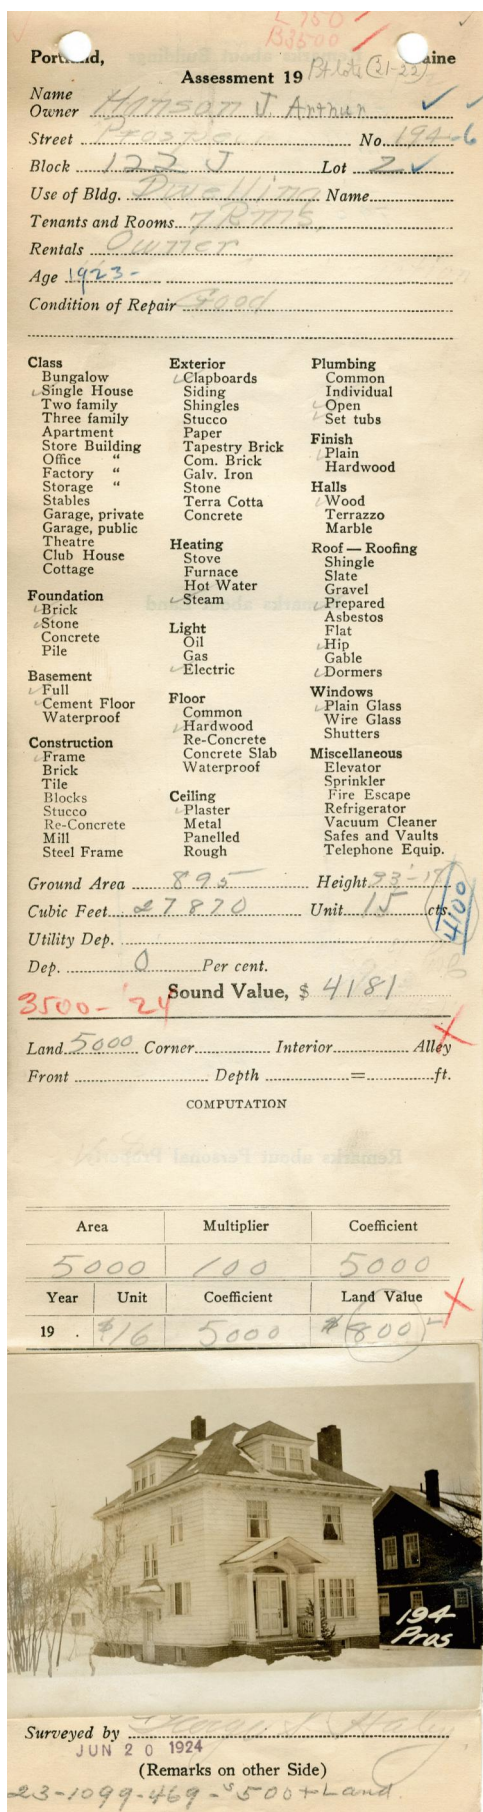 L 750
B3500
Portland, Maine
Assessment 19 Pt lots (21-22)
Name
Owner Hanson J. Arthur
Street Prospect No. 194-6
Block 122 J Lot 2
Use of Bldg. Dwelling Name
Tenants and Rooms 7 Rms.
Rentals Owner
Age 1923-
Condition of Repair Good
Class
Bungalow
Single House
Two family
Three family
Apartment
Store Building
Office "
Factory "
Storage "
Stables
Garage, private
Garage, public
Theatre
Club House
Cottage
Foundation
Brick
Stone
Concrete
Pile
Basement
Full
Cement Floor
Waterproof
Construction
Frame
Brick
Tile
Blocks
Stucco
Re-Concrete
Mill
Steel Frame
Exterior
Clapboards
Siding
Shingles
Stucco
Paper
Tapestry Brick
Com. Brick
Galv. Iron
Stone
Terra Cotta
Concrete
Heating
Stove
Furnace
Hot Water
Steam
Light
Oil
Gas
Electric
Floor
Common
Hardwood
Re-Concrete
Concrete Slab
Waterproof
Ceiling
Plaster
Metal
Panelled
Rough
Plumbing
Common
Individual
Open
Set tubs
Finish
Plain
Hardwood
Halls
Wood
Terrazzo
Marble
Roof — Roofing
Shingle
Slate
Gravel
Prepared
Asbestos
Flat
Hip
Gable
Dormers
Windows
Plain Glass
Wire Glass
Shutters
Miscellaneous
Elevator
Sprinkler
Fire Escape
Refrigerator
Vacuum Cleaner
Safes and Vaults
Telephone Equip.
Ground Area 895 Height
Cubic Feet 27870 Unit 15 cts.
4100
Utility Dep.
Dep. 0 Per cent.
Sound Value, $ 4181
3500- '24
Land 5000 Corner Interior Alley
Front Depth = ft.
COMPUTATION
Area Multiplier Coefficient
5000 100 5000
Year Unit Coefficient Land Value
19 . $16 5000 $800
194
Pros
Surveyed by
JUN 20 1924
(Remarks on other Side)
23-1099-469-$500+Land.